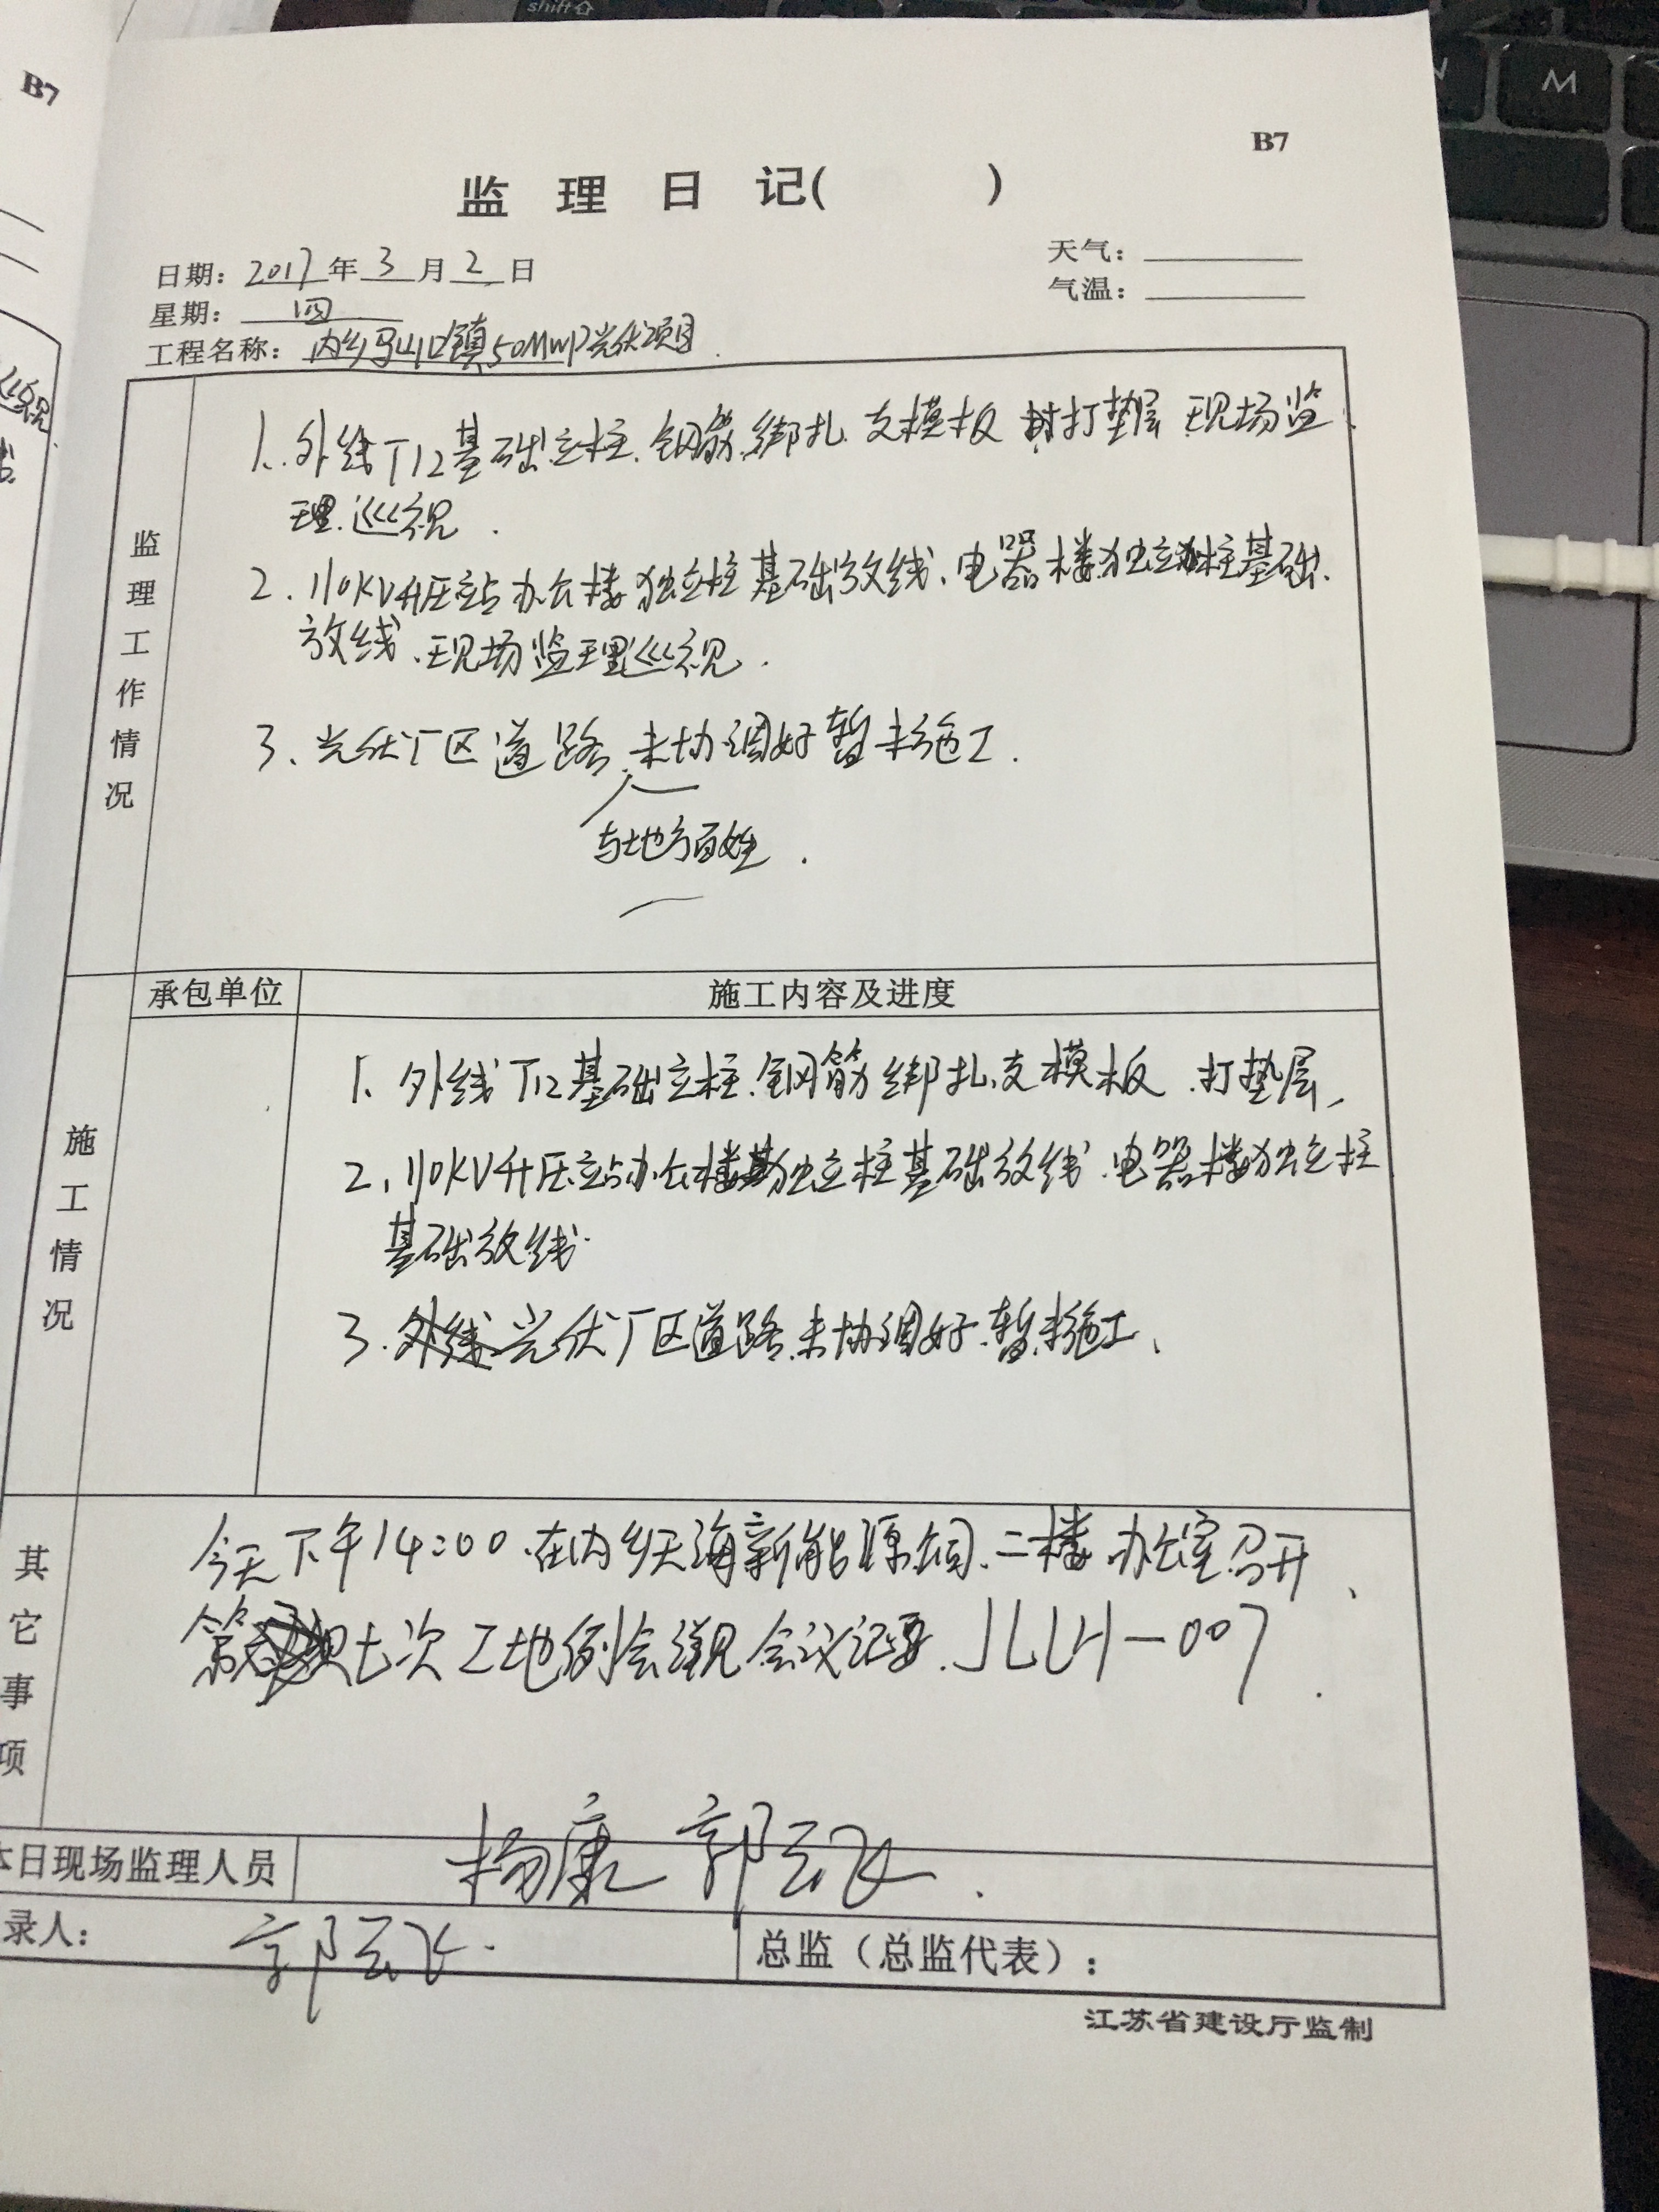 shift
M
B7
B7
监理日记( )
日期：2017年3月2日
天气：
星期：四
气温：
工程名称：内乡马山口镇50MWP光伏项目.
监理工作情况
1、外线T12基础立柱、钢筋绑扎、支模板 打垫层 现场监
理巡视.
2、110KV升压站办公楼独立柱基础放线、电器楼独立柱基础
放线、现场监理巡视.
3、光伏厂区道路、未协调好暂未施工.
与地方百姓.
承包单位
施工内容及进度
施工情况
1、外线T12基础立柱、钢筋绑扎、支模板、打垫层、
2、110KV升压站办公楼独立柱基础放线、电器楼独立柱
基础放线.
3、外线光伏厂区道路、未协调好、暂未施工、
其它事项
今天下午14:00、在内乡天海新能源公司、二楼办公室召开、
第七次工地例会详见会议记要.JLLH-007.
本日现场监理人员
杨康 郭云飞.
录人：
郭云飞.
总监（总监代表）：
江苏省建设厅监制